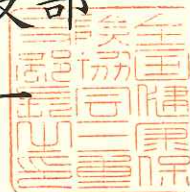 全国健康保
険協会三重
支部長之印